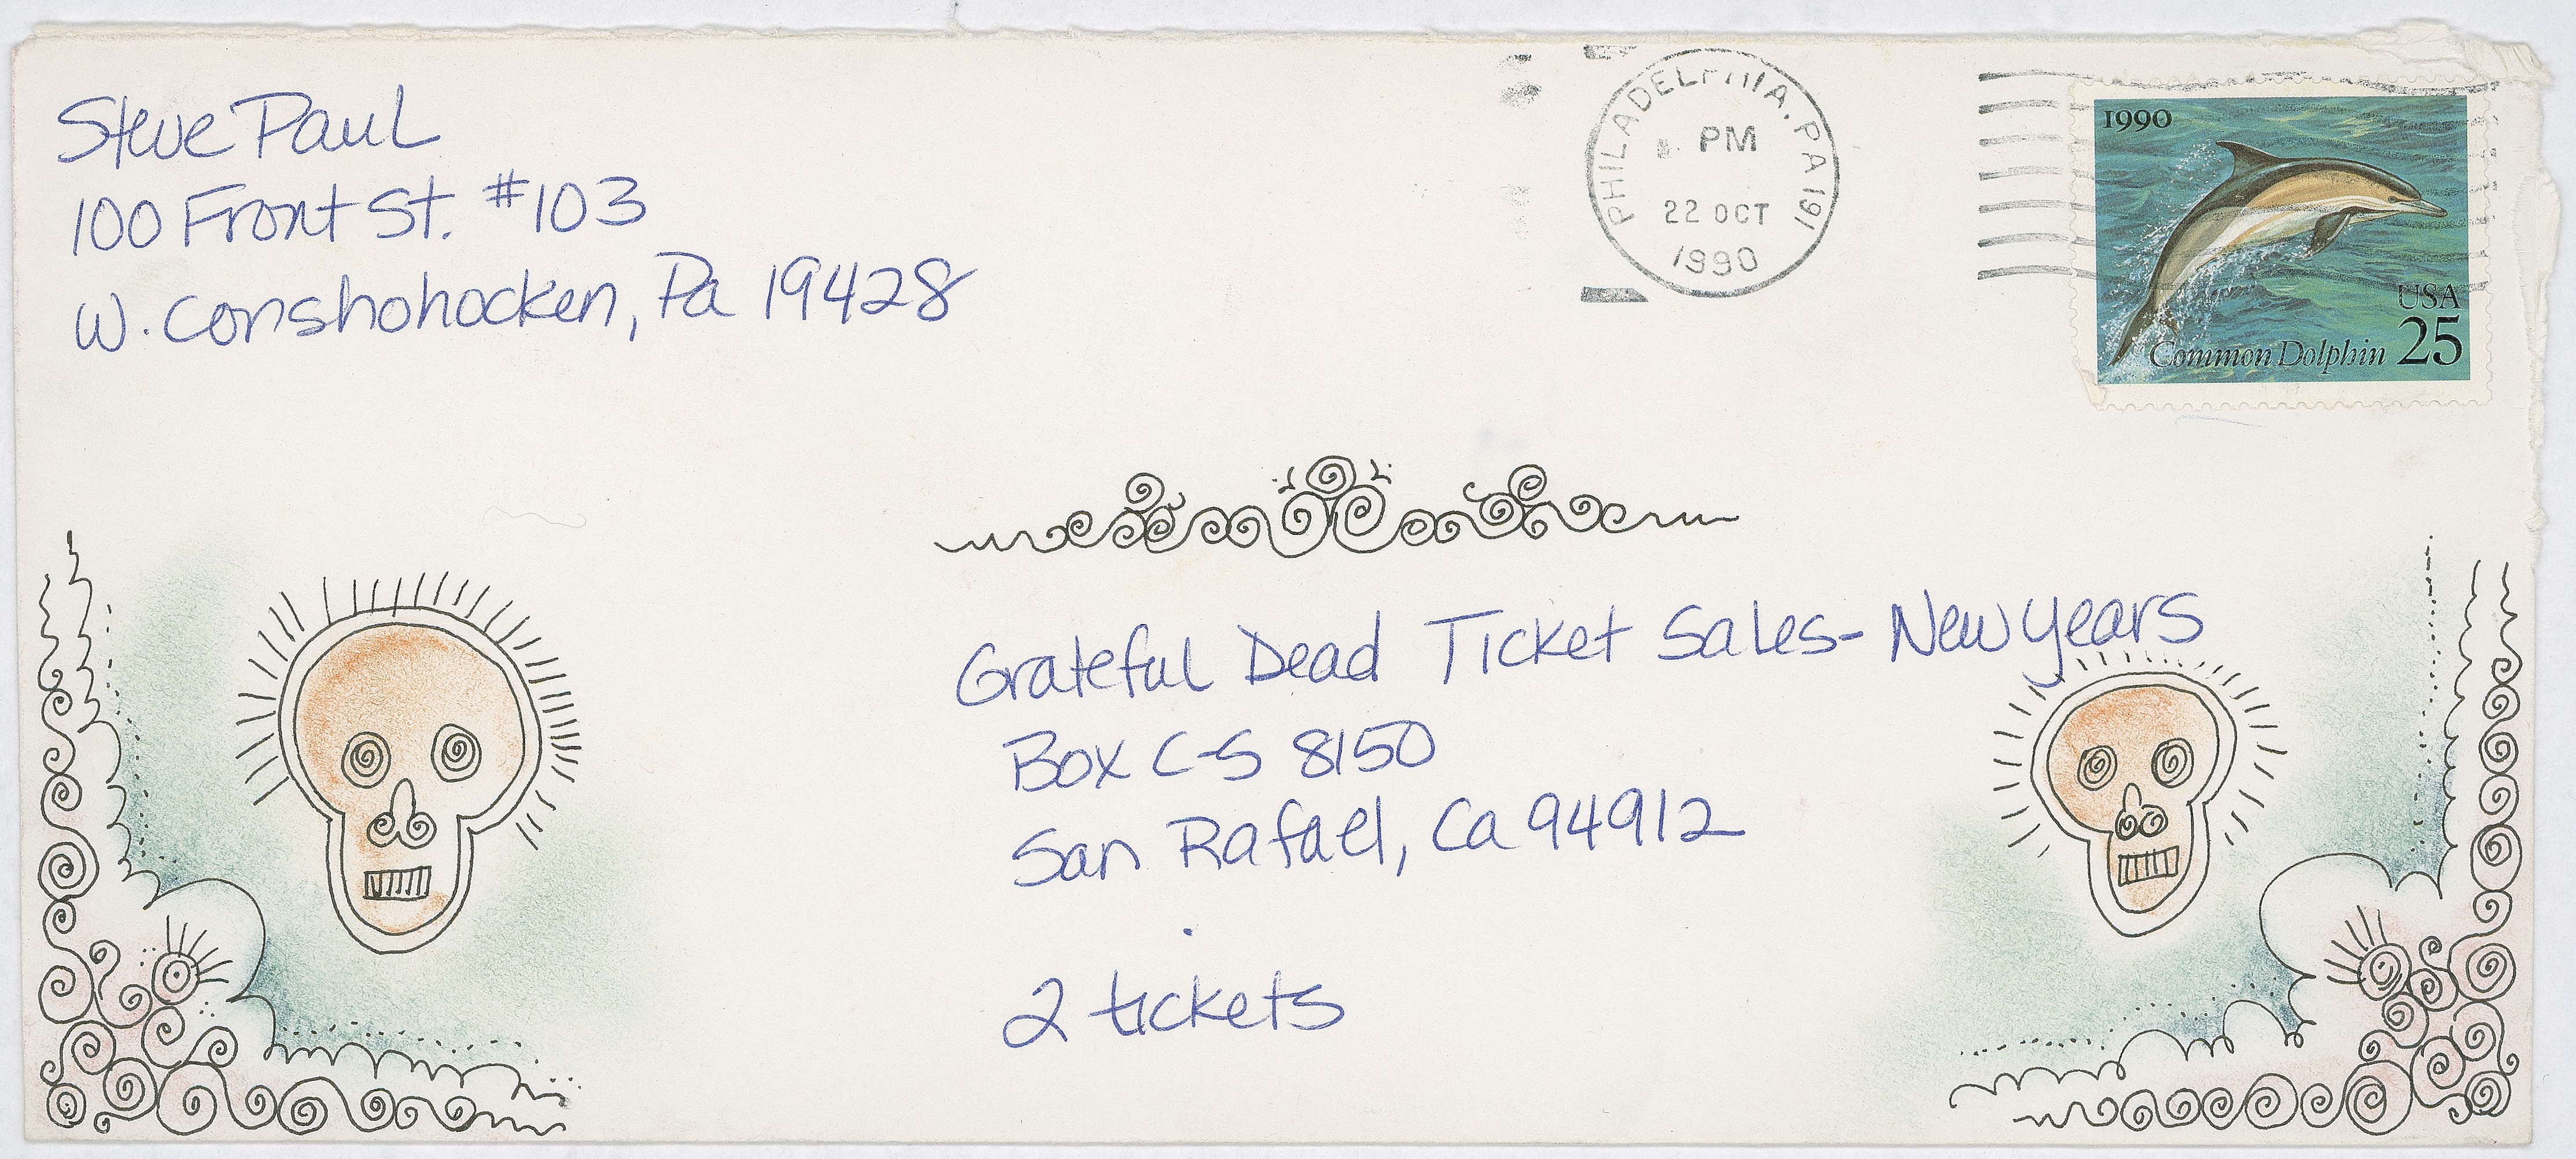 Steve Paul
100 Front St. #103
W. Conshohocken, Pa 19428
PHILADELPHIA, PA 191
PM
22 OCT
1990
1990
USA
25
Common Dolphin
Grateful Dead Ticket Sales- New Years
Box C-S 8150
San Rafael, Ca 94912
2 tickets